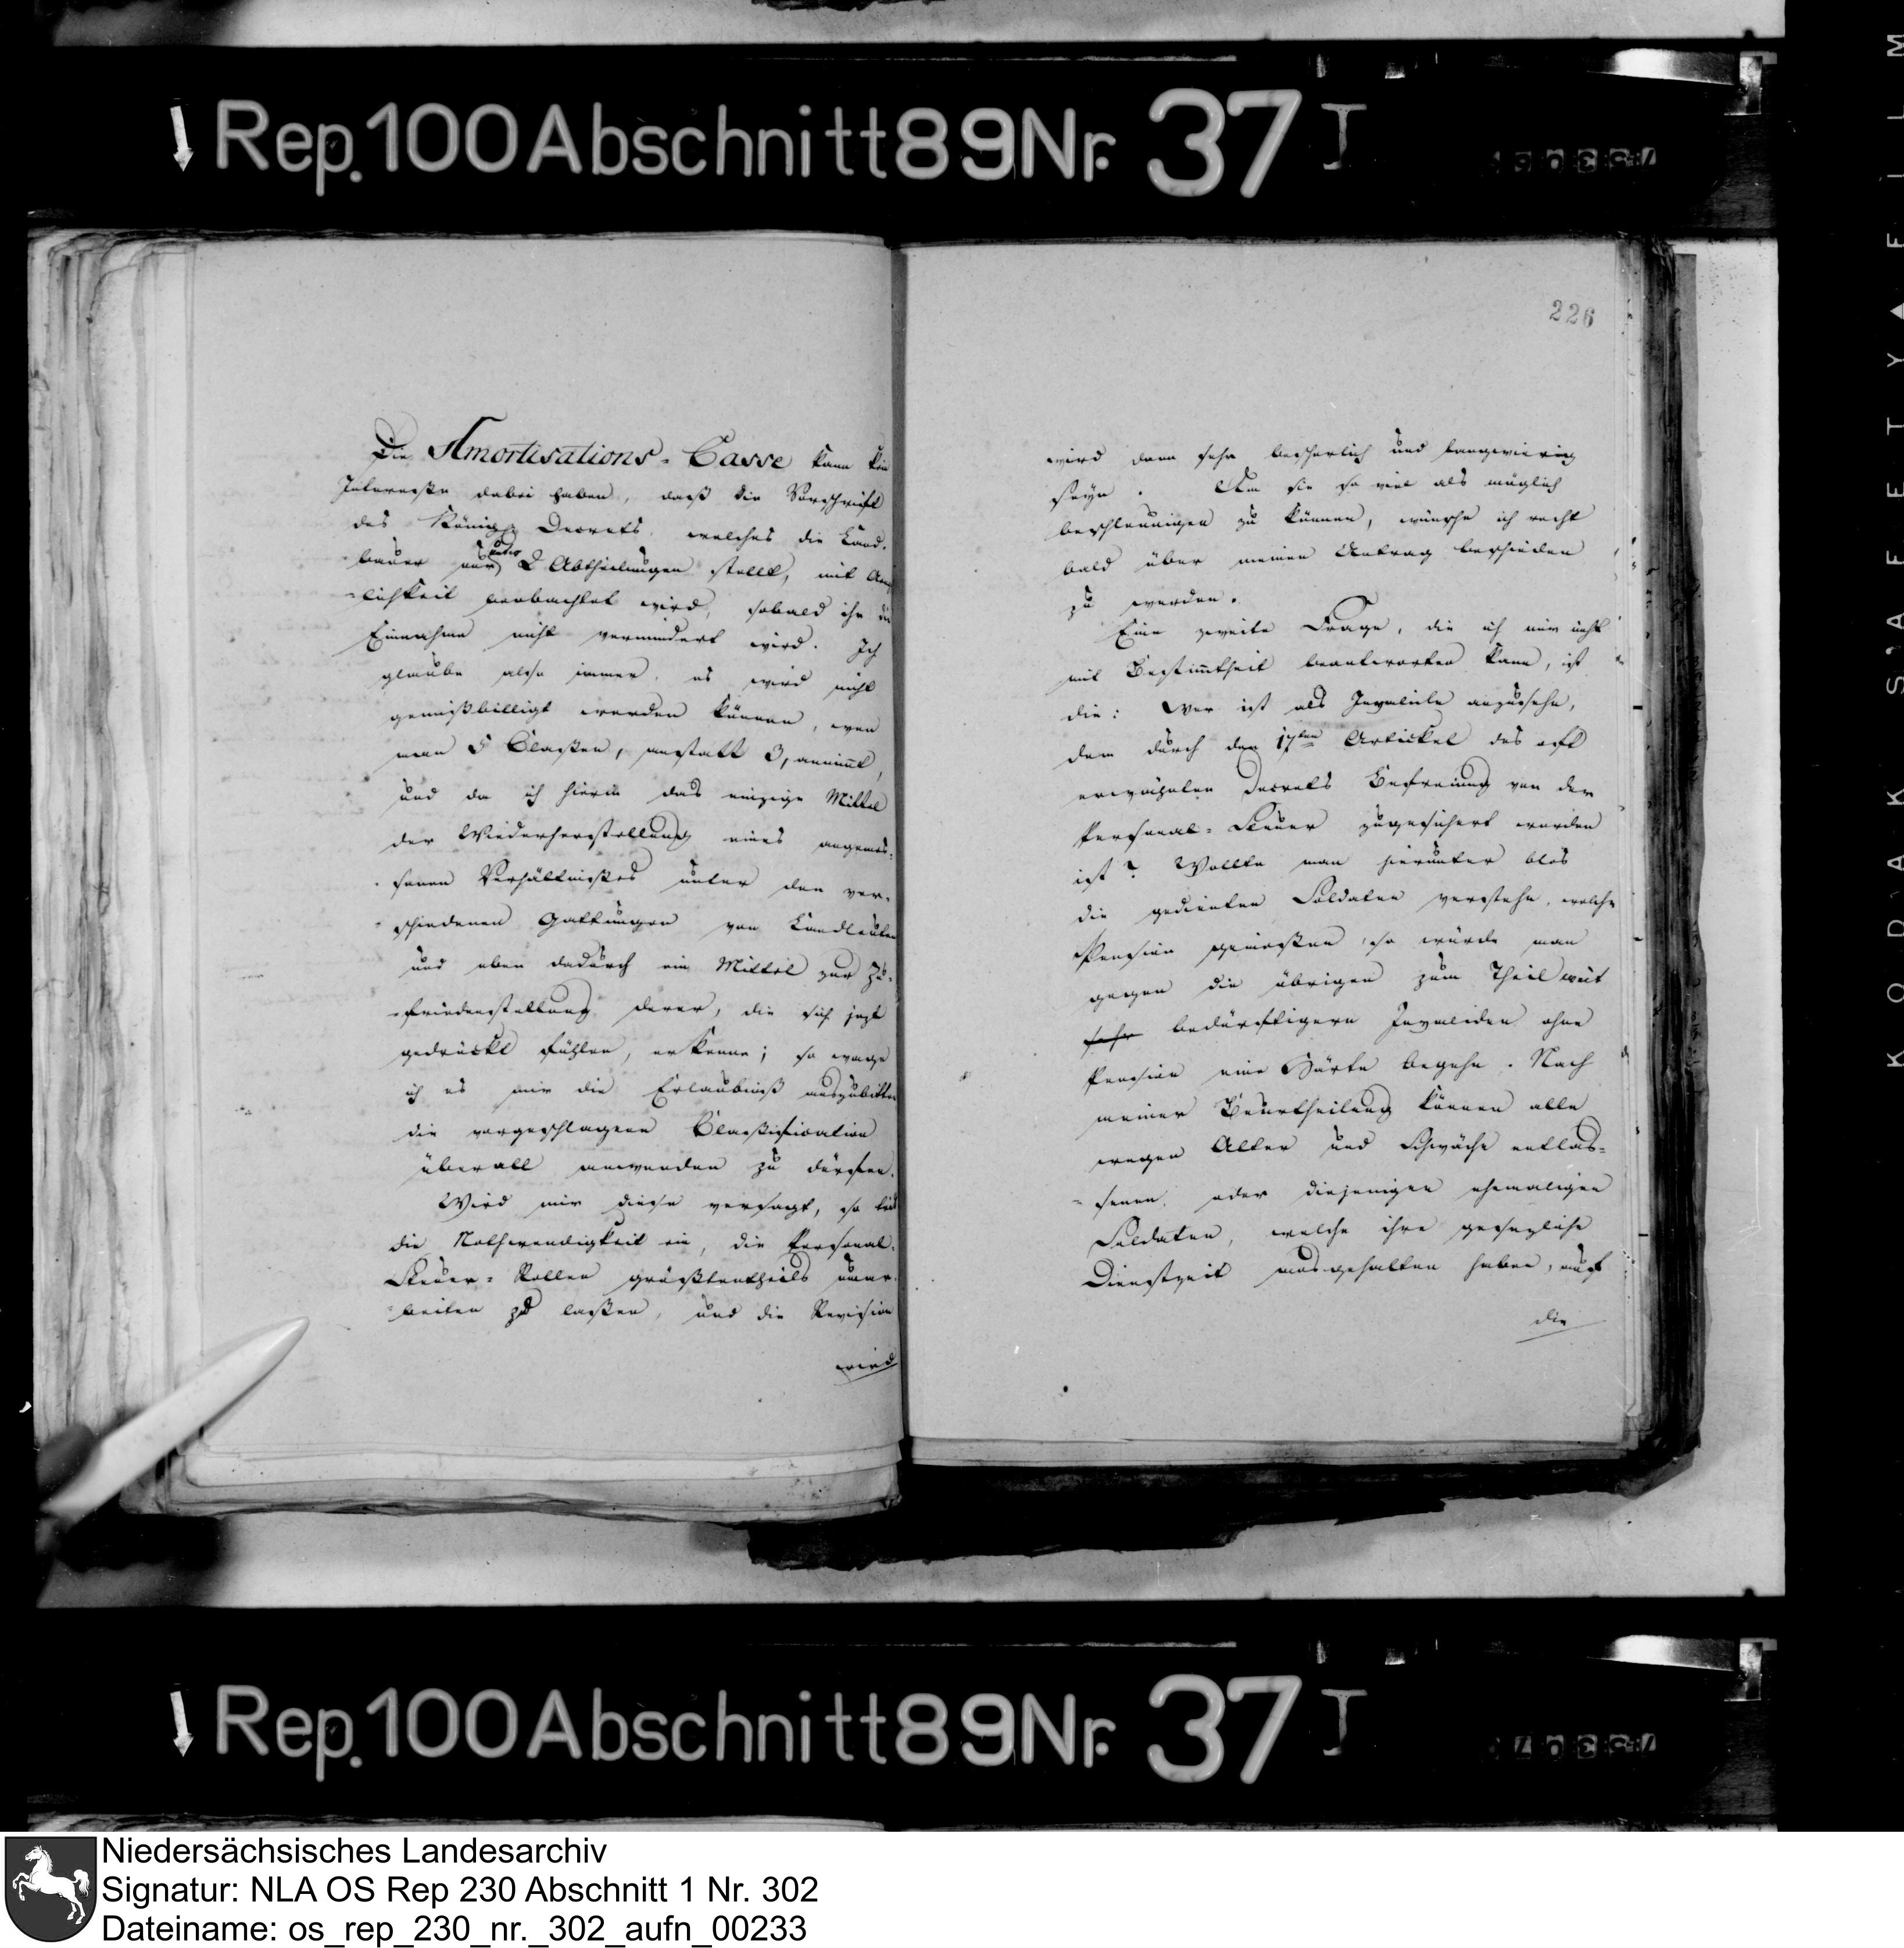 Rep. 100 Abschnitt 89 Nr. 37 I
226
Die Amortisations-Casse kann kein
Interesse dabei haben, daß die Vorschrift
des Königl. Decrets, welches die Land-
bauer nur unter 2 Abtheilungen stellt, mit
-lichkeit beobachtet wird, sobald ihr die
Einnahme nicht vermindert wird. Ich
glaube also immer, es wird nicht
gemißbilligt werden können, wen
man 5 Claßen, anstatt 3, annimt,
und da ich hierin das einzige Mittel
der Wiederherstellung eines angemes-
senen Verhältnißes unter den ver-
schiedenen Gattungen von Landleuten
und eben dadurch ein Mittel zur Zu-
friedenstellung derer, die sich jezt
gedrückt fühlen, erkenne; so wage
ich es mir die Erlaubniß auszubitten
die vorgeschlagene Claßification
überall anwenden zu dürfen.
Wird mir diese versagt, so tritt
die Nothwendigkeit ein, die Personal-
Steuer-Rollen größtentheils umar-
beiten zu laßen, und die Revision
wird
wird dann sehr beschwerlich und langwierig
seyn. Um sie so viel als möglich
beschleunigen zu können, wünsche ich recht
bald über meinen Antrag beschieden
zu werden.
Eine zweite Frage, die ich mir nicht
mit Bestimtheit beantworten kann, ist
die: Wer ist als Invalide anzusehn,
dem durch den 17ten Artickel des oft
erwähnten Decrets Befreiung von der
Personal-Steuer zugesichert worden
ist? Wollte man hierunter blos
die gedienten Soldaten verstehn, welche
Pension genießen, so würde man
gegen die übrigen zum Theil weit
sehr bedürftigern Invaliden ohne
Pension eine Härte begehn. Nach
meiner Beurtheilung können alle
wegen Alter und Schwäche entlas-
senen, oder diejenigen ehemaligen
Soldaten, welche ihre gesezliche
Dienstzeit ausgehalten haben, auf
die
Rep. 100 Abschnitt 89 Nr. 37 I
KODAK SAFETY FILM
Niedersächsisches Landesarchiv
Signatur: NLA OS Rep 230 Abschnitt 1 Nr. 302
Dateiname: os_rep_230_nr._302_aufn_00233